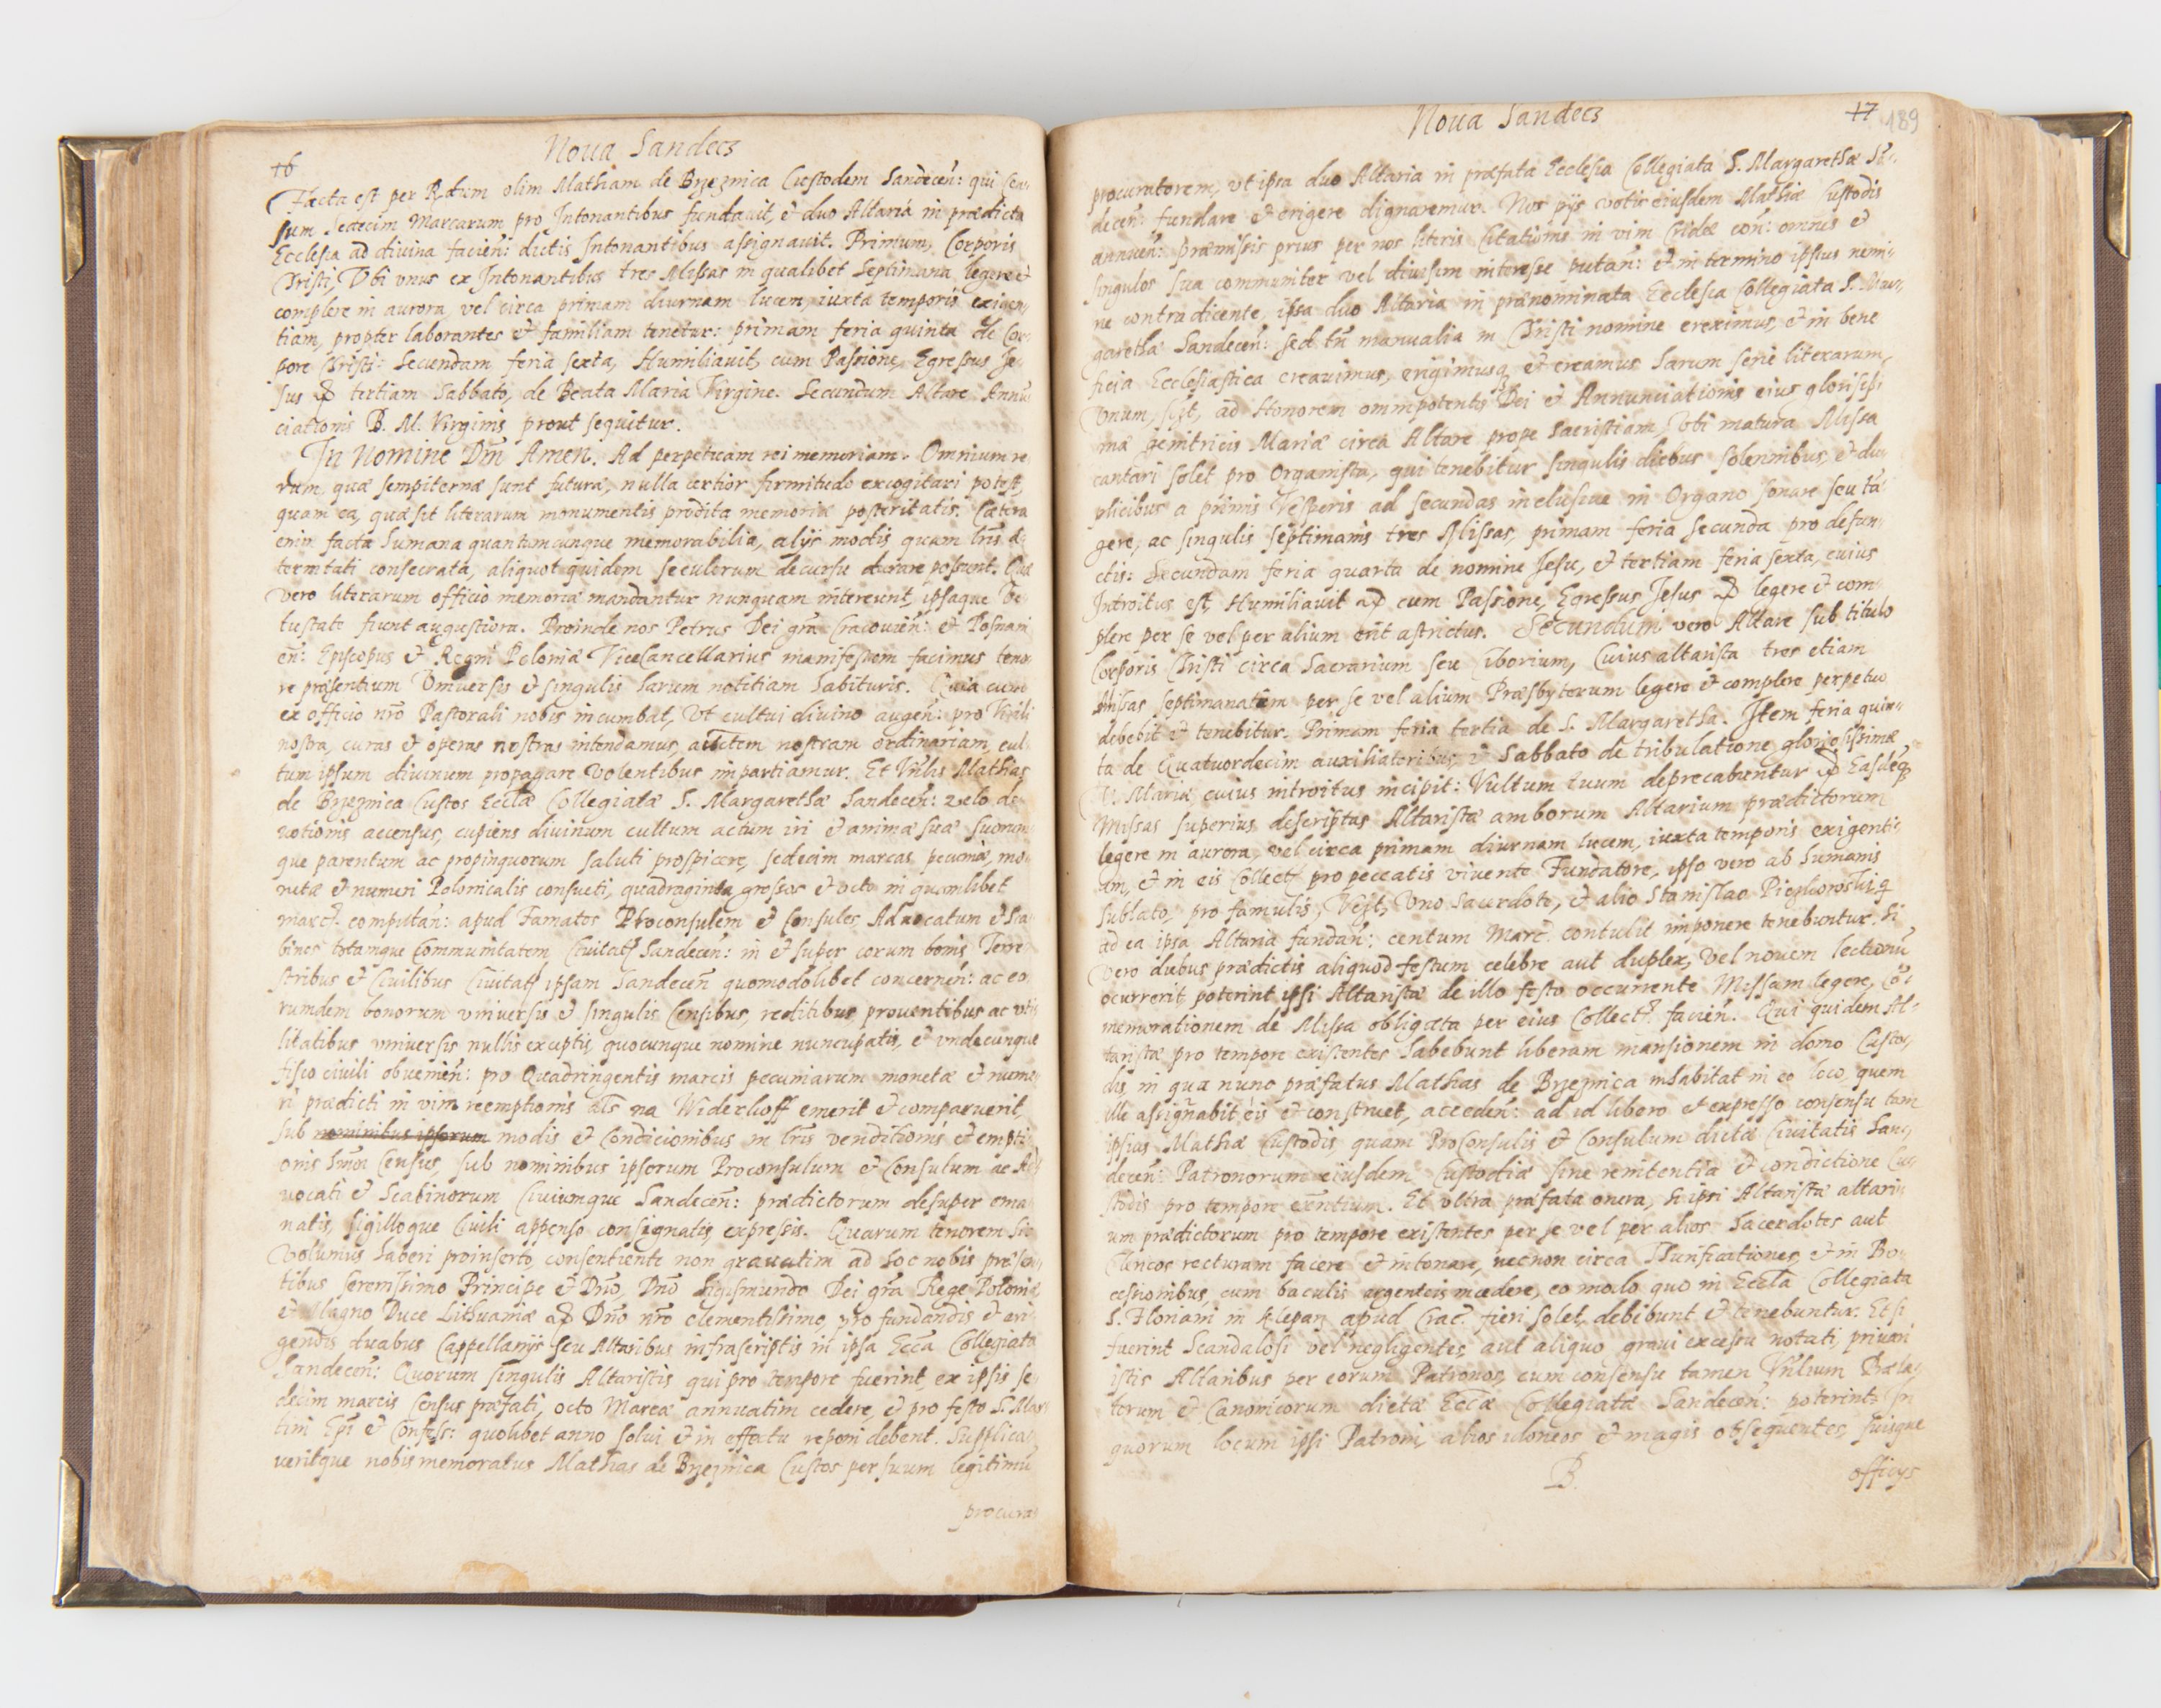 Noua Sandecz
16
Facta est per R.dum olim Mathiam de Brzeznica Custodem Sandecen̄: qui cen-
sum Sedecim Marcarum pro Intonantibus fundauit, & duo Altaria in prædicta
Ecclesia ad diuina facien̄: dictis Intonantibus assignauit. Primum, Corporis
Christi, Vbi vnus ex Intonantibus tres Missas in qualibet Septimana legere et
complere in aurora, vel circa primam diurnam lucem, iuxta temporis exigen-
tiam, propter laborantes & familiam tenetur: primam feria quinta de Cor-
pore Christi: Secundam feria sexta, Humiliauit, cum Passione, Egressus Je-
sus & tertiam Sabbato, de Beata Maria Virgine. Secundum Altare Annū-
ciationis B. M. Virginis prout sequitur.
In Nomine Dn̄i Amen. Ad perpetuam rei memoriam. Omnium re-
rum, quæ sempiternæ sunt futuræ, nulla certior firmitudo excogitari potest,
quam ea, quæ sit literarum monumentis prodita memoriæ posteritatis. Cætera
enim facta humana quantumcunque memorabilia, alijs modis quam lr̄is æ-
ternitati consecrata, aliquot quidem seculorum decursu durare possunt. Quæ
vero literarum officio memoriæ mandantur nunquam intereunt, ipsaque Ve-
tustate fiunt augustiora. Proinde nos Petrus Dei gr̄a Cracouien̄: & Posnani-
en̄: Episcopus & Regni Poloniæ ViceCancellarius manifestum facimus teno-
re præsentium Vniuersis & singulis harum notitiam habituris. Quia cum
ex officio nr̄o Pastorali nobis incumbat, Vt cultui diuino augen̄: pro Virili
nostra, curas & operas nostras intendamus, auctem nostram ordinariam, cul-
tum ipsum diuinum propagare Volentibus impartiamur. Et Vnlis Mathias
de Brzeznica Custos Eccl̄æ Collegiatæ S. Margarethæ Sandecen̄: zælo de-
uotionis accensus, cupiens diuinum cultum actum iri & animæ suæ suorum-
que parentum ac propinquorum saluti prospicere, sedecim marcas pecuniæ, mo-
netæ & numeri Polonicalis consueti, quadraginta grossos & octo in quamlibet
marc. computan̄: apud Famatos Proconsulem & Consules, Aduocatum & Sca-
binos totamque Communitatem Ciuitatis Sandecen̄: in & super eorum bonis Terre-
stribus & Ciuilibus Ciuitatem ipsam Sandecen̄ quomodolibet concernen̄: ac eo-
rumdem bonorum vniuersis & singulis Censibus, reditibus prouentibus ac vti-
litatibus vniuersis nullis exceptis, quocunque nomine nuncupatis, & vndecunque
fisco ciuili obuenien̄: pro Quadringentis marcis pecuniarum monetæ & nume-
ri prædicti in vim reemptionis al̄s na Widerkoff emerit & comparuerit,
sub nominibus ipsorum modis & Condicionibus in lr̄is venditionis & empti-
onis Census, sub nominibus ipsorum Proconsulum & Consulum ac Ad-
uocati & Scabinorum Ciuiumque Sandecen̄: prædictorum desuper ema-
natis, sigilloque Ciuili appenso consignatis, expressis. Quarum tenorem hic
Volumus haberi proinserto, consentiente non grauatim ad hoc nobis præsen-
tibus serenissimo Principe & Dn̄o, Dn̄o Sigismundo Dei gr̄a Rege Poloniæ
& Magno Duce Lithuaniæ & Dn̄o nr̄o clementissimo, pro fundandis & eri-
gendis duabus Cappellanijs seu Altaribus infrascriptis in ipsa Ecc̄a Collegiata
Sandecen̄: Quorum singulis Altaristis qui pro tempore fuerint, ex ipsis se-
decim marcis Census præfati, octo Marcæ annuatim cedere, & pro festo S. Mar-
tini Ep̄i & Confess: quolibet anno solui & in effectu reponi debent. Supplica-
ueritque nobis memoratus Mathias de Brzeznica Custos per suum legitimū
procura-
Noua Sandecz
17
189
procuratorem, vt ipsa duo Altaria in præfata Ecclesia Collegiata S. Margarethæ Sā-
decen̄: fundare & erigere dignaremur. Nos pijs votis eiusdem Mathiæ Custodis
annuen̄: præmissis prius per nos literis Citationis in vim Cridæ con̄: omnes &
singulos sua communiter vel diuisim interesse putan̄: & in termino ipsius nemi-
ne contradicente, ipsa duo Altaria in prænominata Ecclesia Collegiata S. Mar-
garethæ Sandecen̄: sed tn̄ manualia in Christi nomine ereximus, & in bene
ficia Ecclesiastica creauimus, erigimusq, & creamus harum serie literarum,
Vnum, scilt, ad Honorem omnipotentis Dei & Annunciationis eius glorisssi-
mæ genitricis Mariæ circa Altare prope Sacristiam, Vbi matura Missa
cantari solet pro Organista, qui tenebitur singulis diebus solennibus, & du-
plicibus a primis Vesperis ad secundas inclusiue in Organo sonare seu tā-
gere, ac singulis septimanis tres Missas, primam feria secunda pro defun-
ctis: Secundam feria quarta de nomine Jesu, & tertiam feria sexta, cuius
Introitus est, Humiliauit & cum Passione, Egressus Jesus & legere & com-
plere per se vel per alium erit astrictus. Secundum vero Altare sub titulo
Corporis Christi circa Sacrarium seu Ciborium, Cuius altarista tres etiam
Missas septimanatim per se vel alium Præsbyterum legere & complere perpetuo
debebit & tenebitur. Primam feria tertia de S. Margaretha. Item feria quin-
ta de Quatuordecim auxiliatoribus, & Sabbato de tribulatione gloriosissimæ
V. Mariæ cuius introitus incipit: Vultum tuum deprecabuntur & Easdeq
Missas superius descriptas Altaristæ amborum Altarium prædictorum
legere in aurora, vel circa primam diurnam lucem, iuxta temporis exigenti-
am, & in eis Collect. pro peccatis viuente Fundatore, ipso vero ab humanis
sublato, pro famulis, Vizt, Vno Sacerdote, & alio Stanislao Pieglowski, q
ad ea ipsa Altaria fundan̄: centum Marc. contulit imponere tenebuntur. Si
vero diebus prædictis aliquod festum celebre aut duplex, Vel nouem lectionū
ocurrerit, poterint ipsi Altaristæ de illo festo occurrente Missam legere, Cō-
memorationem de Missa obligata per eius Collect. facien̄. Qui quidem Al-
taristæ pro tempore existentes habebunt liberam mansionem in domo Custo-
dis, in qua nunc præfatus Mathias de Brzeznica inhabitat in eo loco, quem
illi assignabit eis & construet, acceden̄: ad id libero et expresso consensu tam
ipsius Mathiæ Custodis, quam ProConsulis & Consulum dictæ Ciuitatis San-
decen̄: Patronorum eiusdem Custodiæ sine renitentia & condictione Cus-
todis pro tempore exn̄tium. Et vltra præfata onera, hi ipsi Altaristæ altari-
um prædictorum pro tempore existentes per se vel per alios Sacerdotes aut
Clericos recturam facere & intonare, necnon circa Thurificationes, & in Pro-
cessionibus cum baculis argenteis incedere, eo modo quo in Eccl̄a Collegiata
S. Floriani in Klepar. apud Crac. fieri solet, debibunt & tenebuntur. Et si
fuerint Scandalosi vel negligentes aut aliquo graui excessu notati, priuari
istis Altaribus per eorum Patronos, cum consensu tamen Vnlium Præla-
torum & Canonicorum dictæ Ecc̄æ Collegiatæ Sandecen̄: poterint: In
quorum locum ipsi Patroni, alios idoneos & magis obsequentes, suisque
B.
officys